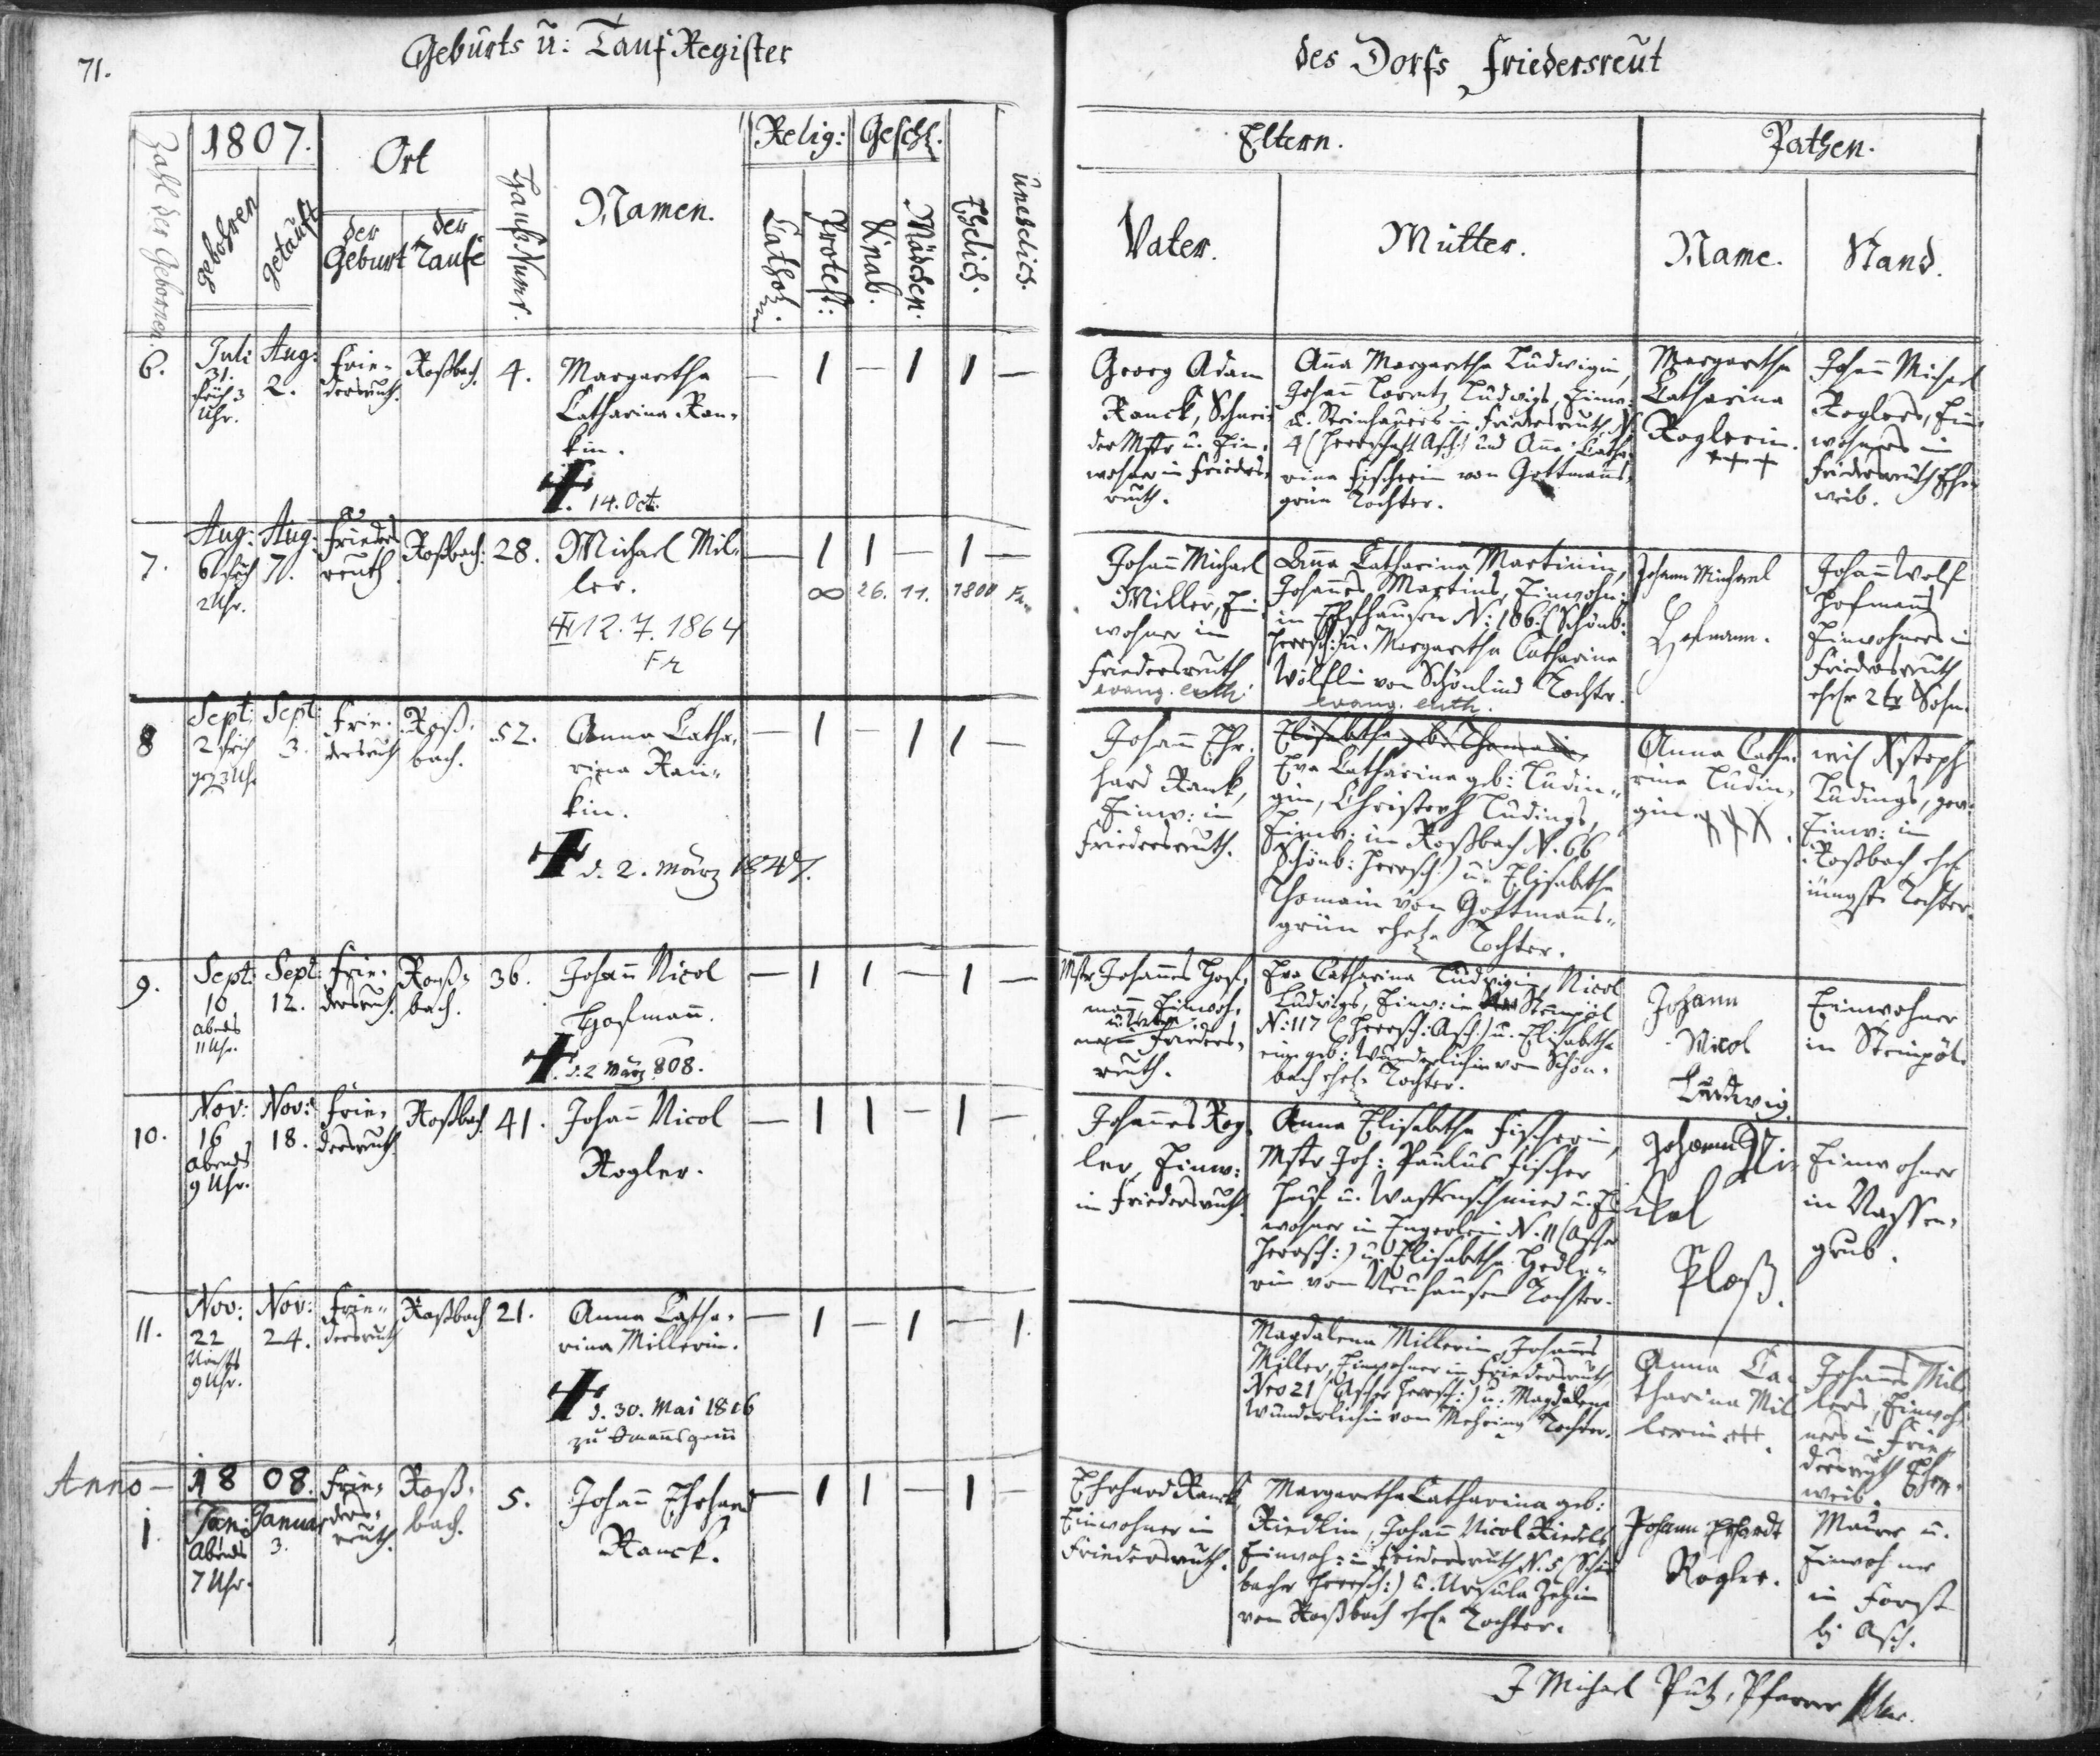 71.
Geburts ũ: Tauf Register
des Dorfs Friedersreut
Zahl der Gebornen.
1807.
gebohren
getauft
Ort
der Geburt
der Taufe
Hauß Numr.
Namen.
Relig:
Cathol.
Protest:
Geschl.
Knab.
Mädchen.
Ehelich.
Unehelich.
Eltern.
Vater.
Mutter.
Pathen.
Name.
Stand.
6.
Juli
31.
früh 3
Uhr.
Aug:
2.
Frie-
dersreuth.
Roßbach.
4.
Margaretha
Catharina Ran-
kin.
14. Oct.
— 1 — 1 1 —
Georg Adam
Ranck, Schnei-
der Mstr u. Ein-
wohner in Frieders-
reuth.
Anna Margaretha Ludwigin,
Johann Ludwigs, Einw:
u. Steinhauers in Friedersreuth N:
4 (Herrschaft Asch) und Anna Catha-
rina Fischerin von Gottmanns-
grün Tochter.
Margaretha
Catharina
Roglerin.
+++
Johann Michael
Roglers, Ein-
wohners in
Friedersreuth Ehe-
weib.
7.
Aug:
6 früh
2 Uhr.
Aug:
7.
Frieders
reuth.
Roßbach:
28.
Michael Mil-
ler.
12.7.1864
Fr
— 1 1 — 1 —
∞ 26. 11.
Johann Michael
Miller, Ein-
wohner in
Friedersreuth
evang. luth.
Anna Catharina Martinin,
Johannes Martins, Einwohn:
in N: 106. (Schönb:
Herrsch:) u. Margaretha Catharina
Wölflin von Schönlind Tochter.
evang. luth.
Johann Michael
Hofmann.
Johann Wolf
Hofmanns
Einwohners in
Friedersreuth
ehel. 2ter Sohn.
8
Sept:
2 früh
gez 3 Uhr
Sept:
3.
Frie-
dersreuth
Roß-
bach.
52.
Anna Catha-
rina Ran-
kin.
d. 2. März 1847.
— 1 — 1 1 —
Johann Ehr-
hard Ranck,
Einw: in
Friedersreuth.
Elisabetha gb: Thomain
Eva Catharina gb: Ludin-
gin, Christoph Ludings,
Einw: in Roßbach N. 66
Schönb: Herrsch:) u. Elisabetha
Thomain von Gottmanns-
grün ehel. Tochter.
Anna Catha-
rina Ludin-
gin. XXX.
Xstoph
Ludings, gew.
Einw: in
Roßbach ehel.
jüngste Tochter.
9.
Sept:
10
abends
11 Uhr.
Sept:
12.
Frie-
dersreuth.
Roß-
bach.
36.
Johann Nicol
Hofmann.
d. 2 März 808.
— 1 1 — 1 —
Mstr Johannes Hof-
mann Einwoh-
Frieders-
reuth.
Eva Catharina Ludwigin, Nicol
Ludwigs, Einw: in Steinpöl
N: 117 (Herrsch: Asch:) u. Elisabetha
geb: Wunderlichin von Schön-
bach ehel. Tochter.
Johann
Nicol
Ludwig.
Einwohner
in Steinpöl.
10.
Nov:
16
abends
9 Uhr.
Nov:
18.
Frie-
dersreuth.
Roßbach.
41.
Johann Nicol
Rogler.
— 1 1 — 1 —
Johannes Rog-
ler, Einw:
in Friedersreuth.
Anna Elisabetha Fischerin,
Mstr Joh: Paulus Fischer
Huf u. Waffenschmied u. Ein-
wohner in N. 11 (Asch
Herrsch:) u. Elisabetha Hedle-
rin von Neuhausen Tochter.
Johann Ni-
kol
Ploß.
Einwohner
in Nassen-
grub.
11.
Nov:
22
Nachts
9 Uhr.
Nov:
24.
Frie-
dersreuth
Roßbach
21.
Anna Catha-
rina Millerin.
d. 30. Mai 1816
— 1 — 1 — 1.
Magdalena Millerin, Johannes
Miller, Einwohner in Friedersreuth
Nro 21 (Ascher Herrsch:) u. Magdalena
Wunderlichin von Mehring Tochter.
Anna Ca-
tharina Mil
lerin +++.
Johannes Mil
lers, Einwoh-
ners in Frie-
dersreuth Ehe-
weib.
Anno — 1808.
1
Jan:
Abends
7 Uhr.
Januar
3.
Frie-
ders-
reuth.
Roß-
bach.
5.
Johann Ehrhard
Ranck.
— 1 1 — 1 —
Ehrhard Ranck,
Einwohner in
Friedersreuth.
Margaretha Catharina geb:
Riedlin, Johann Nicol Riedels
Einwoh: in Friedersreuth N. 5 (Schön
bacher Herrsch:) u. Ursula
von Roßbach ehel. Tochter.
Johann Erhardt
Rogler.
Maurer u.
Einwohner
in Forst
bj Asch.
J Michael Putz, Pfarrer